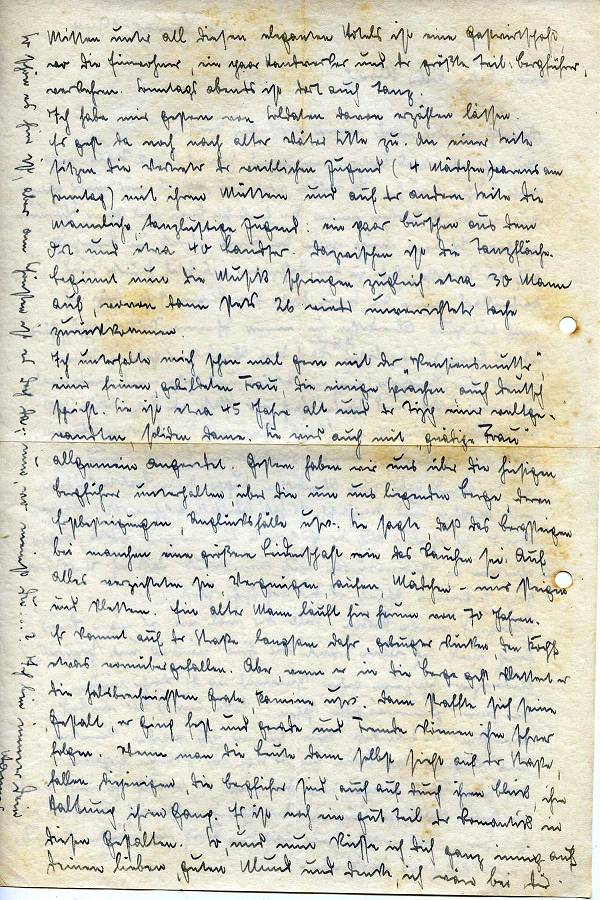 Mitten unter all diesen eleganten Hotels ist eine Gastwirtschaft,
wo die Einwohner, ein paar Handwerker und der größte Teil Bergführer,
verkehren. Sonntags abends ist dort auch Tanz.
Ich habe mir gestern von Soldaten davon erzählen lassen.
Es geht da noch nach alter Väter Sitte zu. An einer Seite
sitzen die Vertreter der weiblichen Jugend (4 Mädchen waren's am
Sonntag) mit ihren Müttern und auf der andern Seite die
männliche, tanzlustige Jugend: ein paar Burschen aus dem
Ort und etwa 40 Landser. Dazwischen ist die Tanzfläche.
Beginnt nun die Musik springen zugleich etwa 30 Mann
auf, wovon dann stets 26 wieder unverrichteter Sache
zurückkommen.
Ich unterhalte mich schon mal gern mit der „Pensionsmutter",
einer feinen, gebildeten Frau, die einige Sprachen auch Deutsch
spricht. Sie ist etwa 45 Jahre alt und der Typ einer weltge-
wandten, soliden Dame. Sie wird auch mit „gnädige Frau"
allgemein angeredet. Gestern haben wir uns über die hiesigen
Bergführer unterhalten, über die um uns liegenden Berge, deren
Erstbesteigungen, Unglücksfälle usw. Sie sagte, daß das Bergsteigen
bei manchen eine größere Leidenschaft wie das Rauchen sei. Auf
alles verzichteten sie, Vergnügen, Saufen, Mädchen – nur steigen
und klettern. Ein alter Mann läuft hier herum von 70 Jahren.
Er kommt auf der Straße langsam daher, gebeugter Rücken, den Kopf
etwas vornübergefallen. Aber, wenn er in die Berge geht, klettert er
die halsbrecherischsten Grate Kamine usw. Dann straffte sich seine
Gestalt, er ging fest und gerade und Fremde können ihm schwer
folgen. Wenn man die Leute dann selbst sieht auf der Straße,
fallen diejenigen, die Bergführer sind, auch auf durch ihren Blick, ihre
Haltung, ihren Gang. Es ist noch ein gut Teil der Romantik in
diesen Gestalten. So, und nun küsse ich Dich ganz innig auf
Deinen lieben, guten Mund und denke, ich wäre bei Dir.
So schön es hier ist, aber am schönsten ist es doch da: nun, was meinst Du ...? Ich bin immer Dein